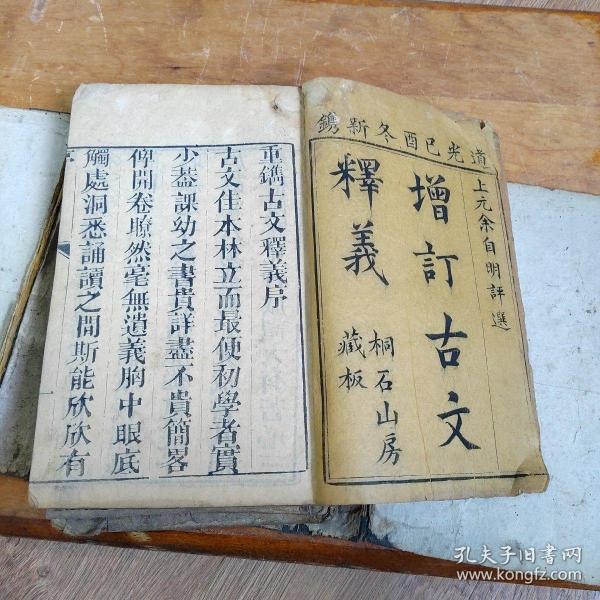 道光己酉冬新鐫
上元余自明評選
增訂古文
釋義
桐石山房
藏板
重鐫古文釋義序
古文佳本林立而最便初學者實
少蓋課幼之書貴詳盡不貴簡畧
俾開卷瞭然毫無遺義胸中眼底
觸處洞悉誦讀之間斯能欣欣有
孔夫子旧書网
www.kongfz.com